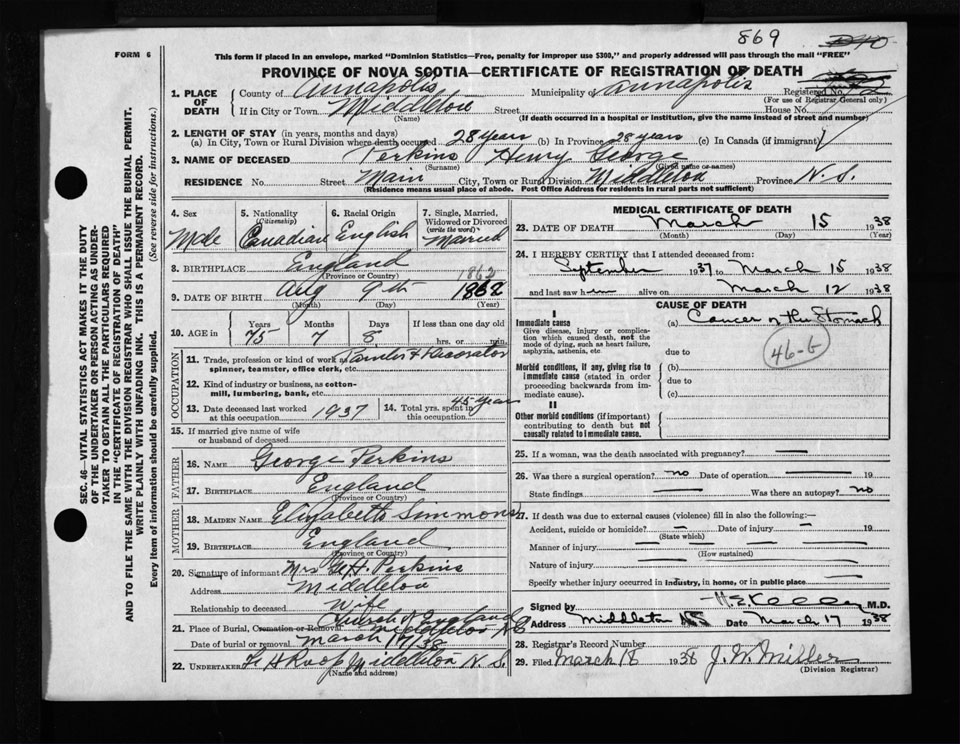 869
FORM 6
This form if placed in an envelope, marked "Dominion Statistics—Free, penalty for improper use $300," and properly addressed will pass through the mail "FREE"
PROVINCE OF NOVA SCOTIA—CERTIFICATE OF REGISTRATION OF DEATH
1. PLACE OF DEATH County of Annapolis Municipality of Annapolis Registered No.
(For use of Registrar General only)
If in City or Town Middleton Street House No.
(Name) (If death occurred in a hospital or institution, give the name instead of street and number)
2. LENGTH OF STAY (in years, months and days)
(a) In City, Town or Rural Division where death occurred 28 years (b) In Province 28 years (c) In Canada (if immigrant)
3. NAME OF DECEASED Perkins Henry George
(Surname) (Given name or names)
RESIDENCE No. Street Main City, Town or Rural Division Middleton Province N.S.
(Residence means usual place of abode. Post Office Address for residents in rural parts not sufficient)
4. Sex Male
5. Nationality (Citizenship) Canadian
6. Racial Origin English
7. Single, Married, Widowed or Divorced (write the word) Married
8. BIRTHPLACE England
(Province or Country)
1862
9. DATE OF BIRTH Aug 9th 1862
(Month) (Day) (Year)
10. AGE in Years Months Days If less than one day old
75 7 8 hrs. or min.
OCCUPATION
11. Trade, profession or kind of work as spinner, teamster, office clerk, etc.
12. Kind of industry or business, as cotton-mill, lumbering, bank, etc.
13. Date deceased last worked at this occupation 1937
14. Total yrs. spent in this occupation 45 years
15. If married give name of wife or husband of deceased
FATHER
16. NAME George Perkins
17. BIRTHPLACE England
(Province or Country)
MOTHER
18. MAIDEN NAME Elizabeth Simmons
19. BIRTHPLACE England
(Province or Country)
20. Signature of informant Mrs H. Perkins
Address Middleton
Relationship to deceased Wife
21. Place of Burial, Cremation or Removal Church of England Middleton N.S.
Date of burial or removal March 17/38
22. UNDERTAKER Roop Middleton N.S.
(Name and address)
MEDICAL CERTIFICATE OF DEATH
23. DATE OF DEATH March 15 1938
(Month) (Day) (Year)
24. I HEREBY CERTIFY that I attended deceased from:
September 1937 to March 15 1938
and last saw him alive on March 12 1938
CAUSE OF DEATH
I
Immediate cause
Give disease, injury or complication which caused death, not the mode of dying, such as heart failure, asphyxia, asthenia, etc.
(a) Cancer of the Stomach
46-G
due to
Morbid conditions, if any, giving rise to immediate cause (stated in order proceeding backwards from immediate cause).
(b)
due to
(c)
II
Other morbid conditions (if important) contributing to death but not causally related to immediate cause.
25. If a woman, was the death associated with pregnancy?
26. Was there a surgical operation? no Date of operation 19
State findings Was there an autopsy? no
27. If death was due to external causes (violence) fill in also the following:—
Accident, suicide or homicide? Date of injury 19
(State which)
Manner of injury
(How sustained)
Nature of injury
Specify whether injury occurred in industry, in home, or in public place
Signed by M.D.
Address Middleton NS Date March 17 1938
28. Registrar's Record Number
29. Filed March 18 1938 J. W. Miller
(Division Registrar)
SEC. 46—VITAL STATISTICS ACT MAKES IT THE DUTY
OF THE UNDERTAKER OR PERSON ACTING AS UNDER-
TAKER TO OBTAIN ALL THE PARTICULARS REQUIRED
IN THE "CERTIFICATE OF REGISTRATION OF DEATH"
AND TO FILE THE SAME WITH THE DIVISION REGISTRAR WHO SHALL ISSUE THE BURIAL PERMIT.
WRITE PLAINLY WITH UNFADING INK. THIS IS A PERMANENT RECORD.
Every item of information should be carefully supplied. (See reverse side for instructions.)